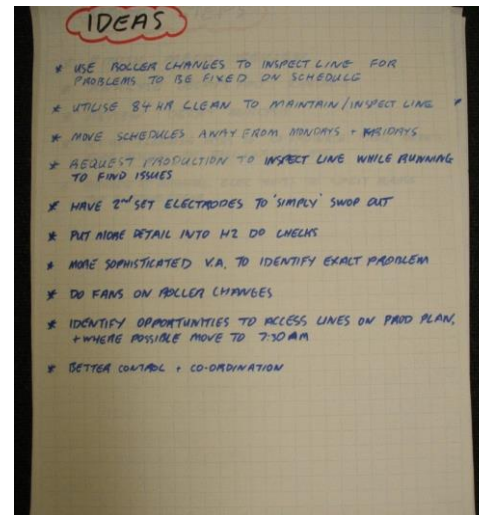 IDEAS
* USE ROLLER CHANGES TO INSPECT LINE FOR
PROBLEMS TO BE FIXED ON SCHEDULE
* UTILISE 84 HR CLEAN TO MAINTAIN/INSPECT LINE
* MOVE SCHEDULES AWAY FROM MONDAYS + FRIDAYS
* REQUEST PRODUCTION TO INSPECT LINE WHILE RUNNING
TO FIND ISSUES
* HAVE 2nd SET ELECTRODES TO 'SIMPLY' SWOP OUT
* PUT MORE DETAIL INTO H2 DO CHECKS
* MORE SOPHISTICATED V.A. TO IDENTIFY EXACT PROBLEM
* DO FANS ON ROLLER CHANGES
* IDENTIFY OPPORTUNITIES TO ACCESS LINES ON PROD PLAN,
+ WHERE POSSIBLE MOVE TO 7:30 AM
* BETTER CONTROL + CO-ORDINATION